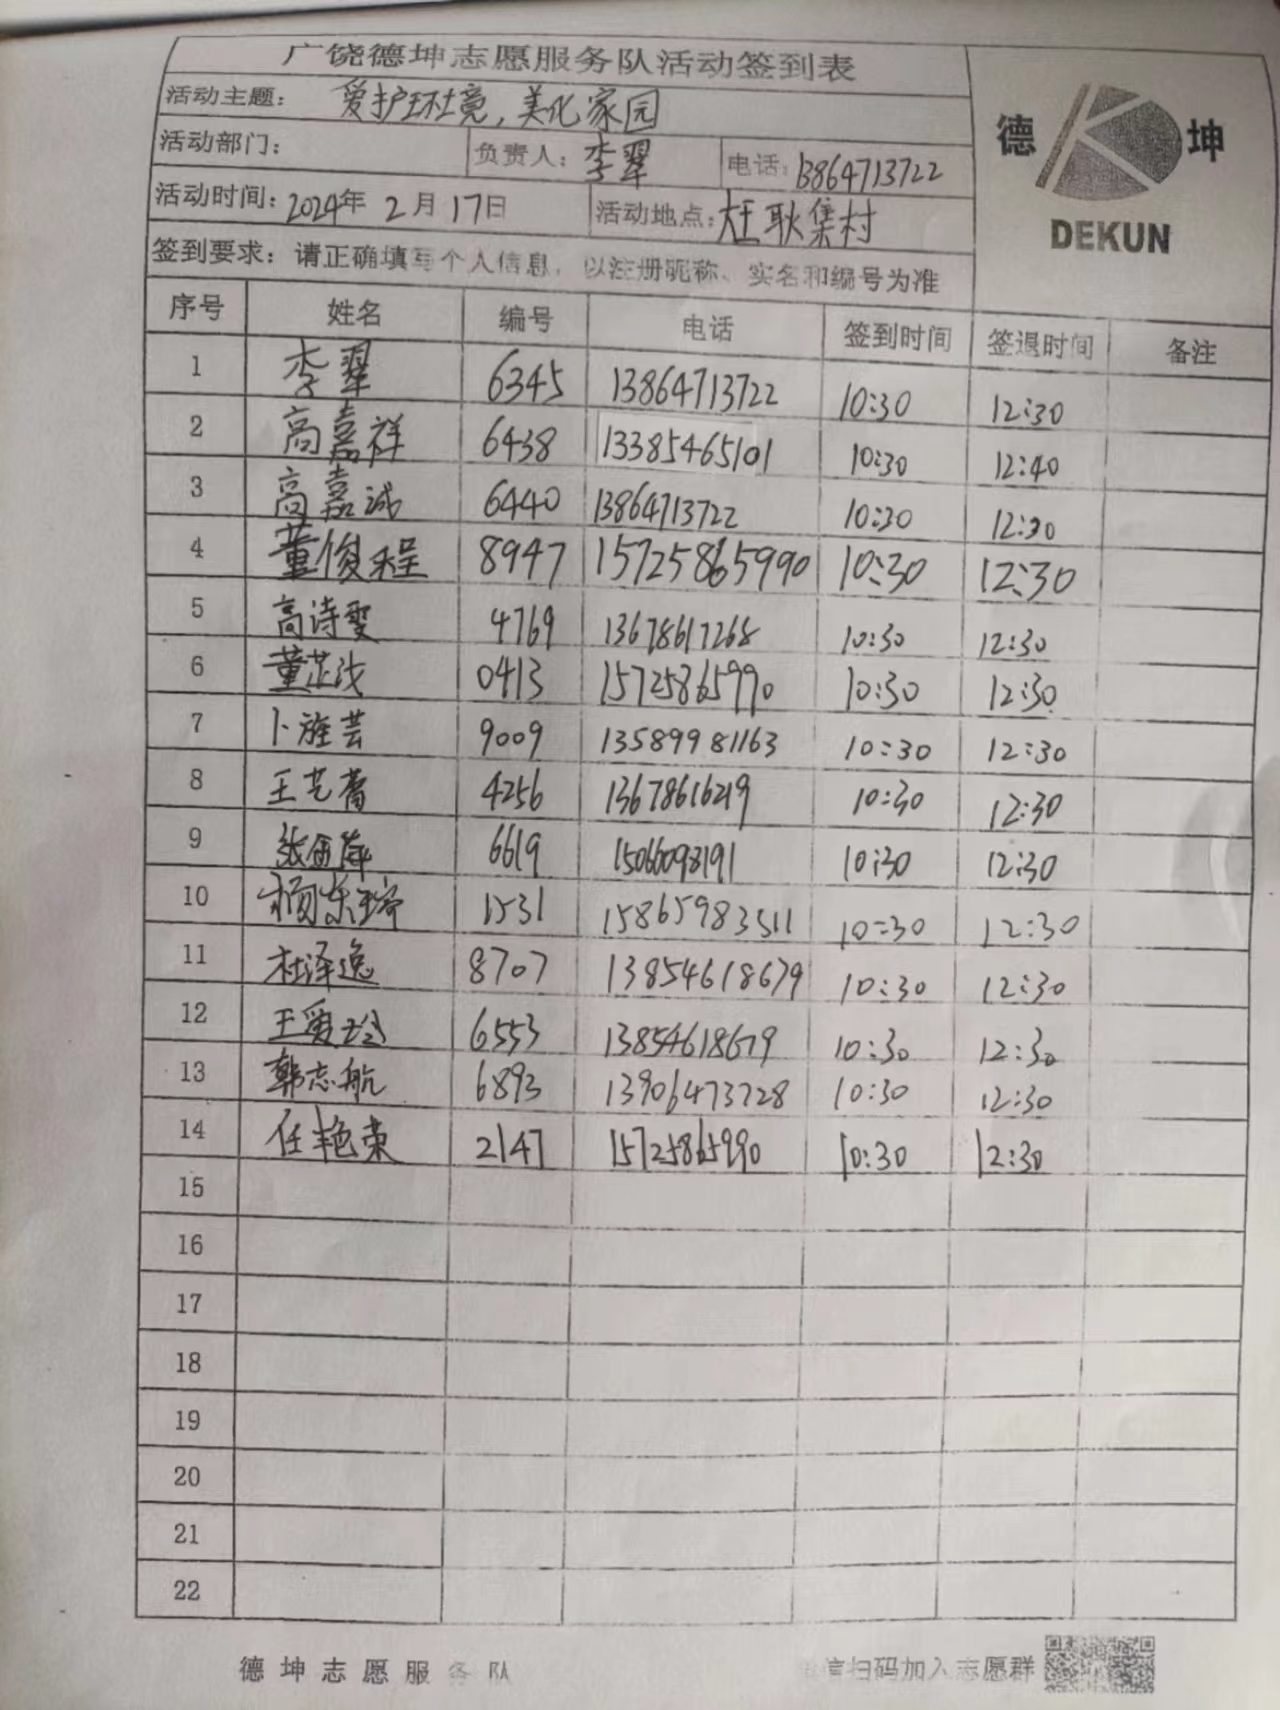 广饶德坤志愿服务队活动签到表
活动主题： 爱护环境，美化家园
德 坤
DEKUN
活动部门： 负责人：李翠 电话：13864713722
活动时间：2024年 2月 17日 活动地点： 耿集村
签到要求：请正确填写个人信息，以注册昵称、实名和编号为准
序号 姓名 编号 电话 签到时间 签退时间 备注
1 李翠 6345 13864713722 10:30 12:30
2 高嘉祥 6438 13385465101 10:30 12:40
3 高嘉诚 6440 13864713722 10:30 12:30
4 董俊程 8947 157258865990 10:30 12:30
5 高诗雯 4769 13678617268 10:30 12:30
6 董芷 0413 15725865990 10:30 12:30
7 卜 芸 9009 13589981163 10:30 12:30
8 王艺 4256 13678616219 10:30 12:30
9 张 6619 15066098191 10:30 12:30
10 1531 15865983511 10:30 12:30
11 杜泽逸 8707 13854618679 10:30 12:30
12 王爱玲 6553 13854618679 10:30 12:30
13 韩志航 6893 13906473728 10:30 12:30
14 任艳荣 2147 15725865990 10:30 12:30
15
16
17
18
19
20
21
22
德坤志愿服务队 微信扫码加入志愿群